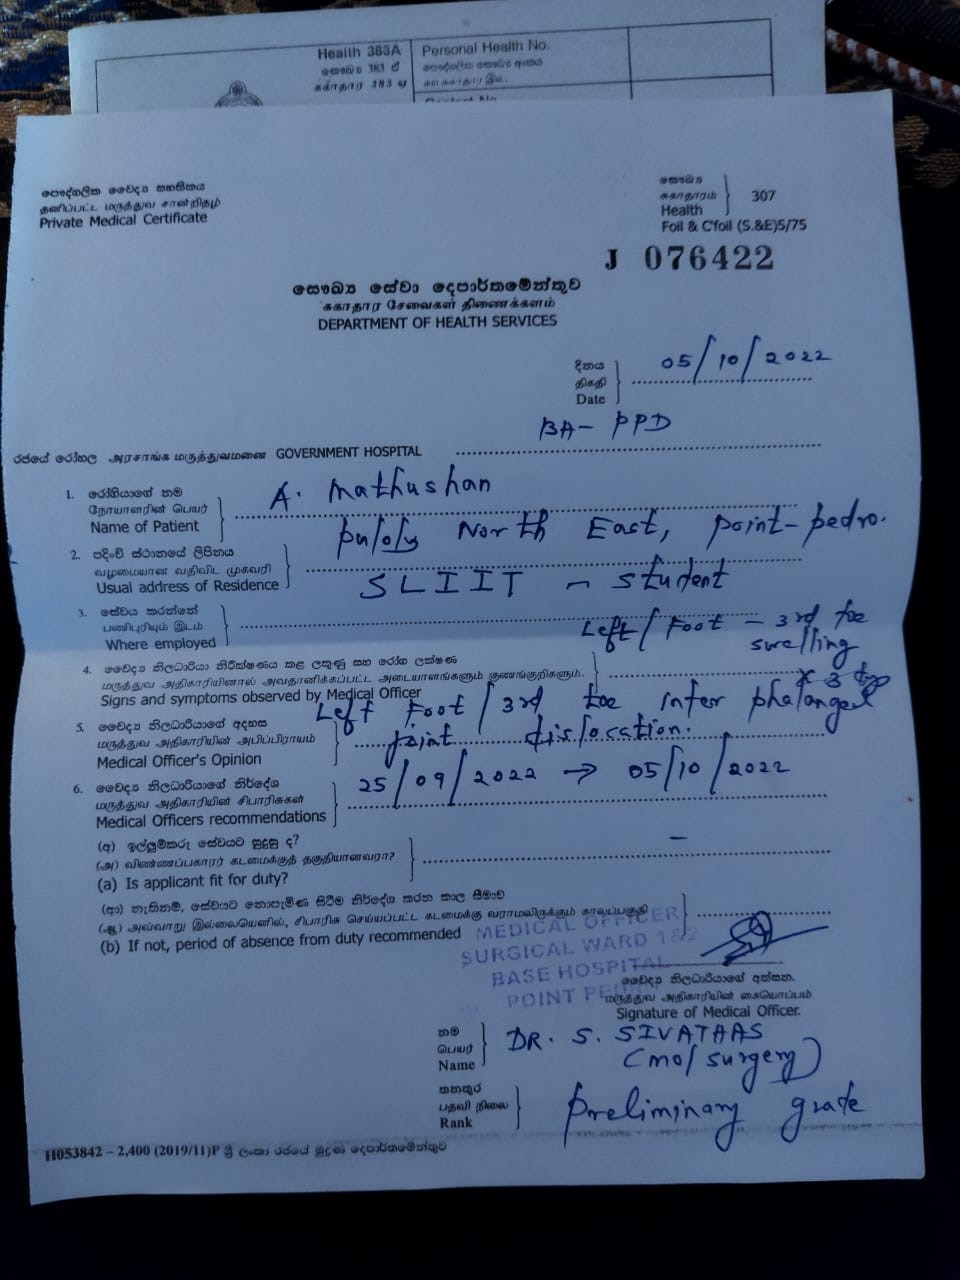 Health 383A
සෞඛ්‍ය 383 ඒ
சுகாதார 383 ஏ
Personal Health No.
පෞද්ගලික සෞඛ්‍ය අංකය
சுய சுகாதார இல.
Contact No.
පෞද්ගලික වෛද්‍ය සහතිකය
தனிப்பட்ட மருத்துவ சான்றிதழ்
Private Medical Certificate
සෞඛ්‍ය
சுகாதாரம்
Health
307
Foil & C'foil (S.&E)5/75
J 076422
සෞඛ්‍ය සේවා දෙපාර්තමේන්තුව
சுகாதார சேவைகள் திணைக்களம்
DEPARTMENT OF HEALTH SERVICES
දිනය
திகதி
Date
05/10/2022
BA- PPD
රජයේ රෝහල அரசாங்க மருத்துவமனை GOVERNMENT HOSPITAL
1. රෝගියාගේ නම
நோயாளரின் பெயர்
Name of Patient
A. Mathushan
2. පදිංචි ස්ථානයේ ලිපිනය
வழமையான வதிவிட முகவரி
Usual address of Residence
Puloly North East, Point-pedro.
3. සේවය කරන්නේ
பணிபுரியும் இடம்
Where employed
SLIIT - student
4. වෛද්‍ය නිලධාරියා නිරීක්ෂණය කළ ලකුණු සහ රෝග ලක්ෂණ
மருத்துவ அதிகாரியினால் அவதானிக்கப்பட்ட அடையாளங்களும் குணங்குறிகளும்.
Signs and symptoms observed by Medical Officer
Left/Foot - 3rd toe
swelling
x 3
5. වෛද්‍ය නිලධාරියාගේ අදහස
மருத்துவ அதிகாரியின் அபிப்பிராயம்
Medical Officer's Opinion
Left Foot/3rd toe inter phalangeal
joint dislocation.
6. වෛද්‍ය නිලධාරියාගේ නිර්දේශ
மருத்துவ அதிகாரியின் சிபாரிசுகள்
Medical Officers recommendations
25/09/2022 → 05/10/2022
(අ) ඉල්ලුම්කරු සේවයට සුදුසු ද?
(அ) விண்ணப்பகாரர் கடமைக்குத் தகுதியானவரா?
(a) Is applicant fit for duty?
–
(ආ) නැතිනම්, සේවයට නොපැමිණ සිටීම නිර්දේශ කරන කාල සීමාව
(ஆ) அவ்வாறு இல்லையெனில், சிபாரிசு செய்யப்பட்ட கடமைக்கு வராமலிருக்கும் காலப்பகுதி
(b) If not, period of absence from duty recommended
MEDICAL OFFICER
SURGICAL WARD 1&2
BASE HOSPITAL
POINT PEDRO
වෛද්‍ය නිලධාරියාගේ අත්සන.
மருத்துவ அதிகாரியின் கையொப்பம்
Signature of Medical Officer.
නම
பெயர்
Name
DR. S. SIVATHAS
(mo/surgery)
තනතුර
பதவி நிலை
Rank
Preliminary grade
H053842 – 2,400 (2019/11)P ශ්‍රී ලංකා රජයේ මුද්‍රණ දෙපාර්තමේන්තුව